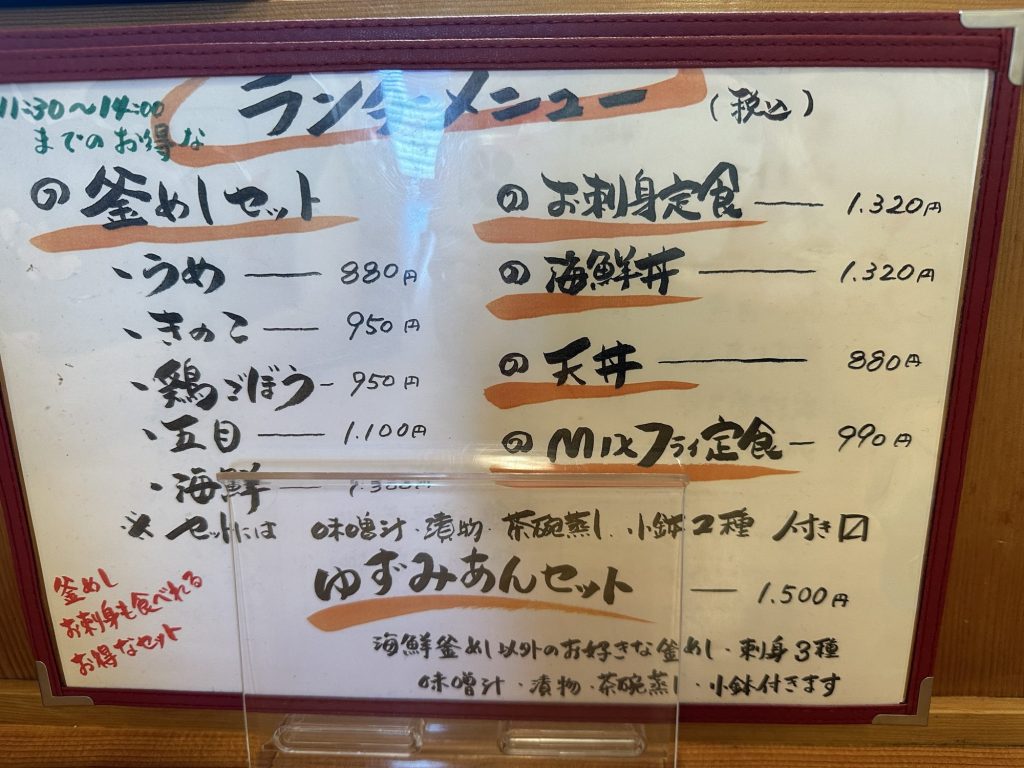 ランチメニュー (税込)
11:30～14:00
までのお得な
の 釜めしセット
・うめ 880円
・きのこ 950円
・鶏ごぼう 950円
・五目 1.100円
・海鮮
の お刺身定食 1.320円
の 海鮮丼 1.320円
の 天丼 880円
の MIXフライ定食 990円
※ セットには 味噌汁・漬物・茶碗蒸し・小鉢2種 付き〼
ゆずみあんセット 1.500円
海鮮釜めし以外のお好きな釜めし・刺身3種
味噌汁・漬物・茶碗蒸し・小鉢付きます
釜めし
お刺身も食べれる
お得なセット